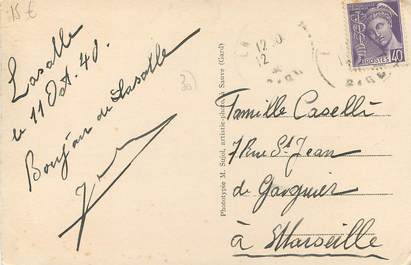 15€
Lasalle
le 11 Oct. 40.
Bonjour de Lasalle
30
Phototype M. Sujol, artiste-photo, Sauve (Gard)
POSTES 40
12
12
GARD
Famille Caselli
7 Rue St Jean
de Garguier
à Marseille